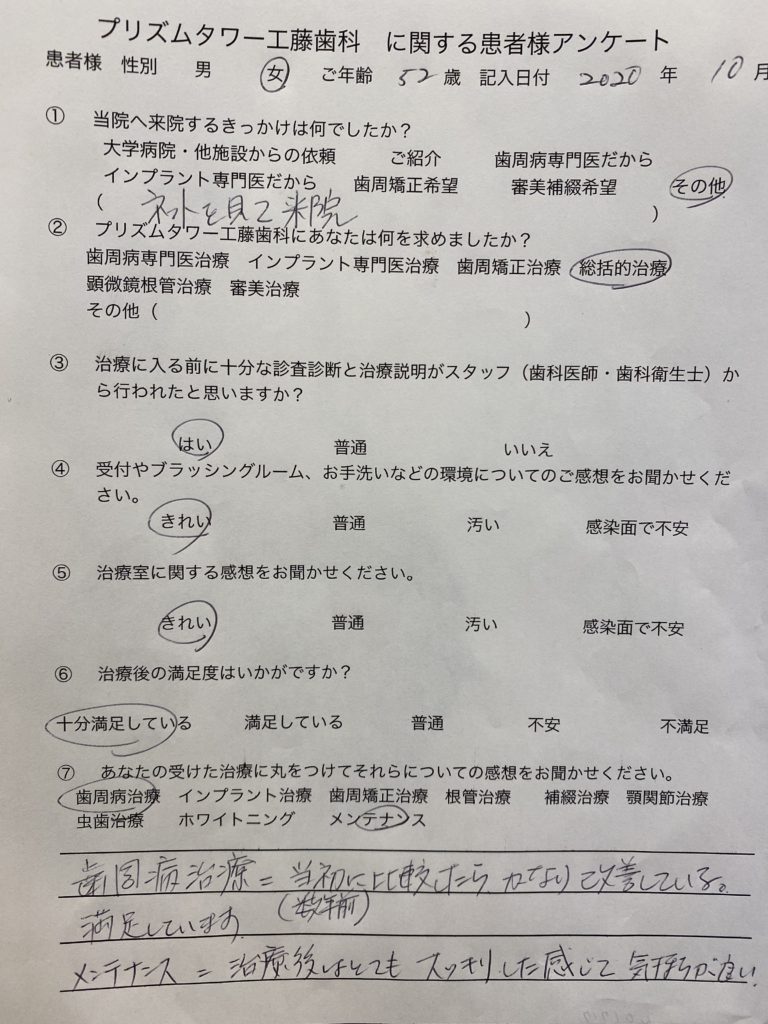 プリズムタワー工藤歯科 に関する患者様アンケート
患者様 性別 男 女 ご年齢 52 歳 記入日付 2020 年 10 月
① 当院へ来院するきっかけは何でしたか？
大学病院・他施設からの依頼 ご紹介 歯周病専門医だから
インプラント専門医だから 歯周矯正希望 審美補綴希望 その他
( ネットを見て来院 )
② プリズムタワー工藤歯科にあなたは何を求めましたか？
歯周病専門医治療 インプラント専門医治療 歯周矯正治療 総括的治療
顕微鏡根管治療 審美治療
その他 ( )
③ 治療に入る前に十分な診査診断と治療説明がスタッフ（歯科医師・歯科衛生士）か
ら行われたと思いますか？
はい 普通 いいえ
④ 受付やブラッシングルーム、お手洗いなどの環境についてのご感想をお聞かせくだ
さい。
きれい 普通 汚い 感染面で不安
⑤ 治療室に関する感想をお聞かせください。
きれい 普通 汚い 感染面で不安
⑥ 治療後の満足度はいかがですか？
十分満足している 満足している 普通 不安 不満足
⑦ あなたの受けた治療に丸をつけてそれらについての感想をお聞かせください。
歯周病治療 インプラント治療 歯周矯正治療 根管治療 補綴治療 顎関節治療
虫歯治療 ホワイトニング メンテナンス
歯周病治療 = 当初に比較したら かなり改善している。
(数年前)
満足しています
メンテナンス = 治療後はとても スッキリした感じで 気持ちが良い!